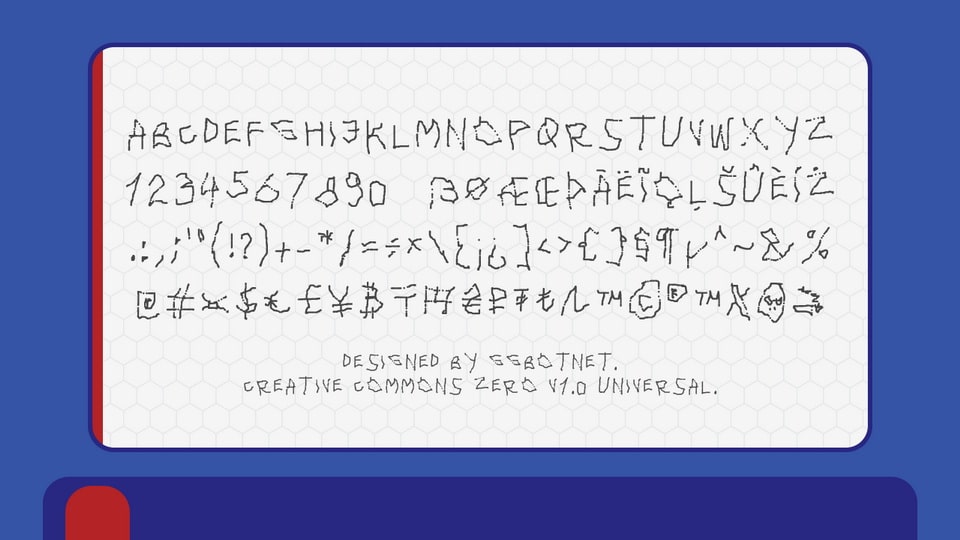 ABCDEFGHIJKLMNOPQRSTUVWXYZ
1234567890 ẞØÆŒÞÄËÏǪĻŠÛÈÍŻ
.:,;'"(!?)+-*/=÷×\[¡¿]<>{}§¶µ^~&%
@#¤$€£¥₿₸₴₽₺TM©®TM
DESIGNED BY GGBOTNET.
CREATIVE COMMONS ZERO V1.0 UNIVERSAL.